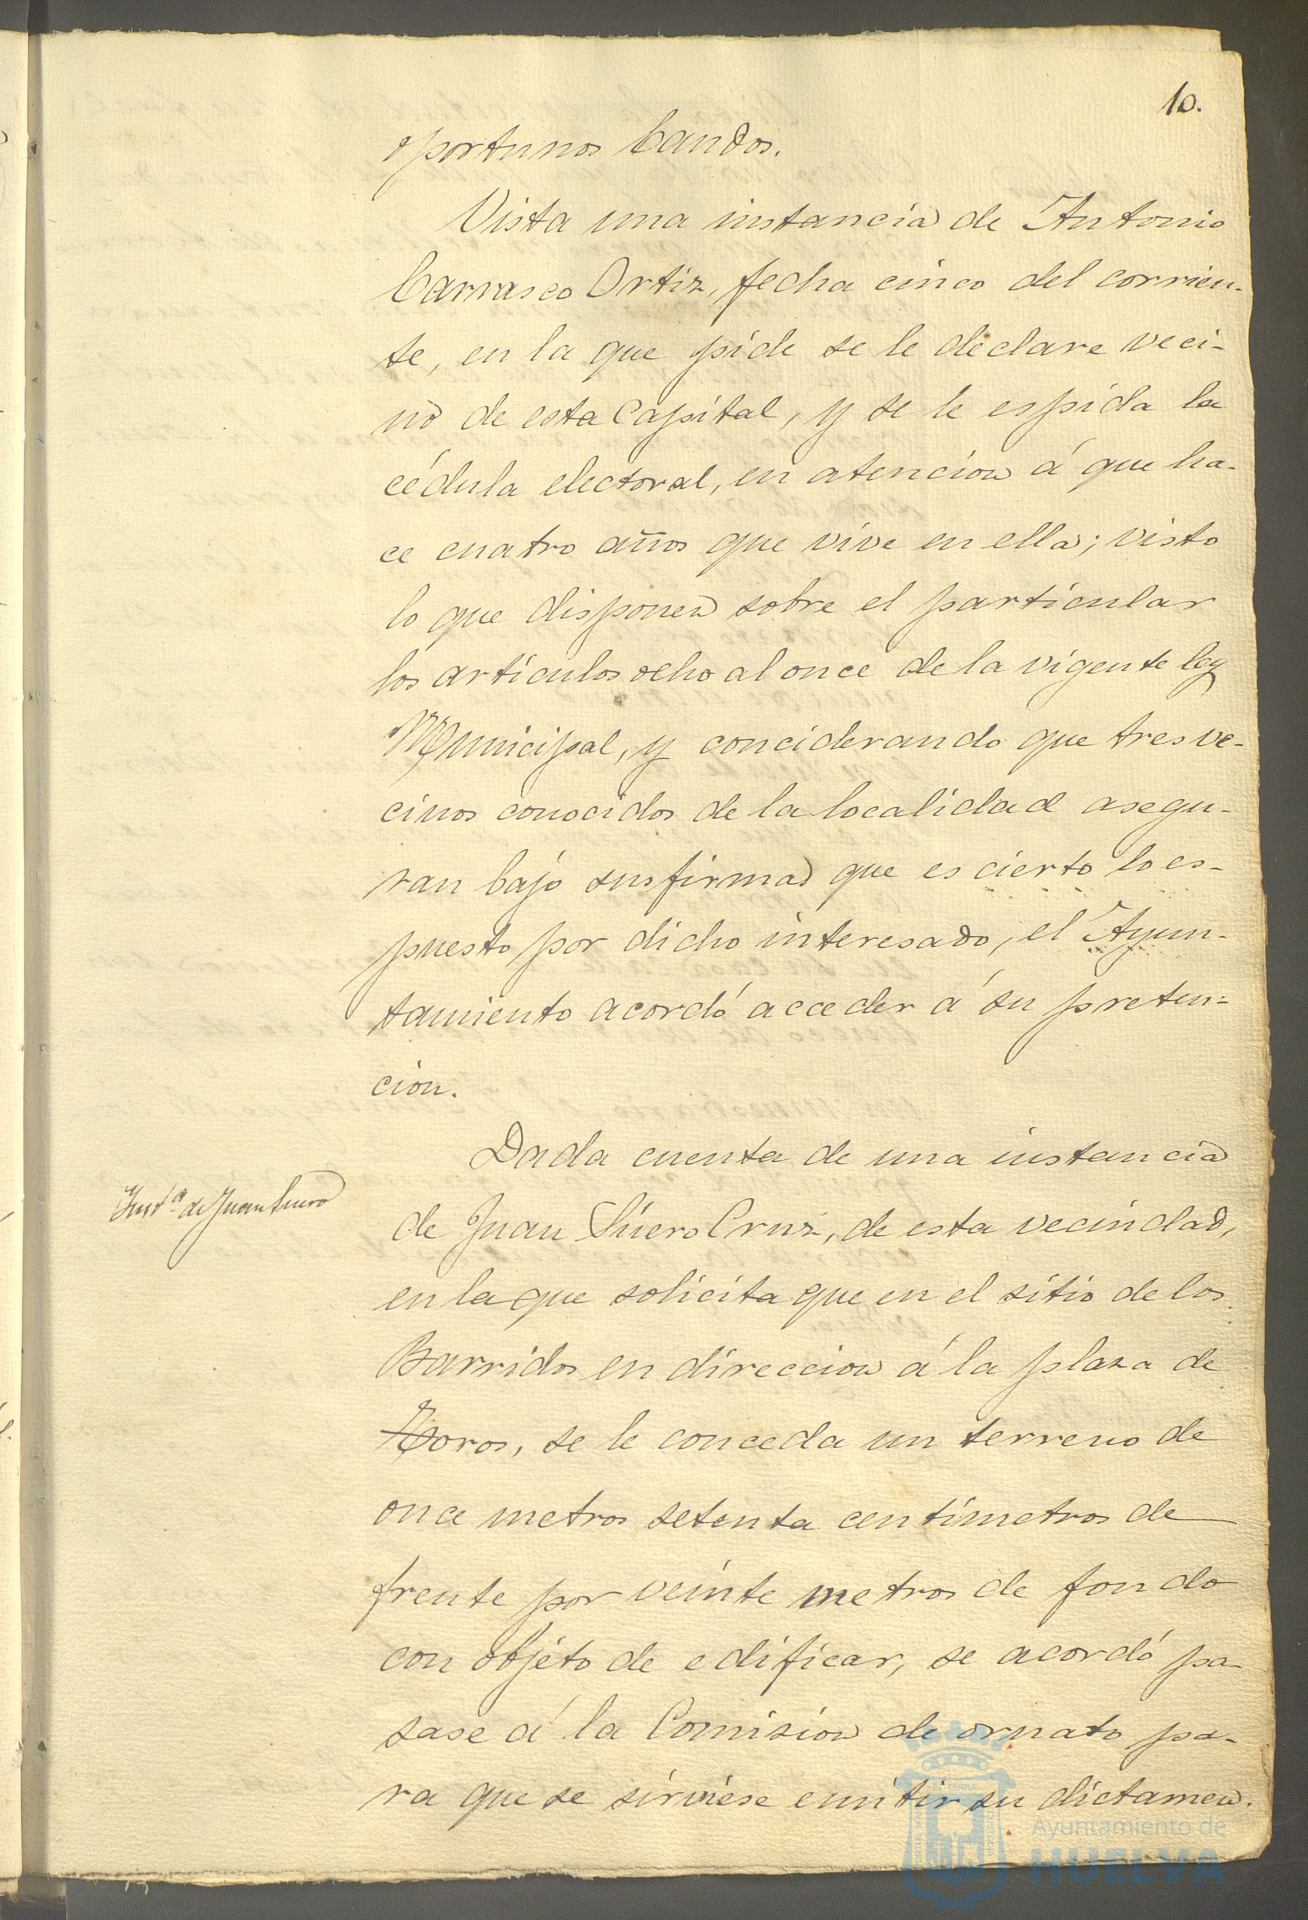 10.
oportunos bandos.
Vista una instancia de Antonio
Carrasco Ortiz, fecha cinco del corrien-
te, en la que pide se le declare veci-
no de esta Capital, y se le espida la
cédula electoral, en atencion á que ha-
ce cuatro años que vive en ella; visto
lo que disponen sobre el particular
los artículos ocho al once de la vigente ley
Municipal, y conciderando que tres ve-
cinos conocidos de la localidad asegu-
ran bajo sus firmas que es cierto lo es-
puesto por dicho interesado, el Ayun-
tamiento acordó acceder á su preten-
cion.
Dada cuenta de una instancia
Inst.ª de Juan Suero
de Juan Suero Cruz, de esta vecindad,
en la que solicita que en el sitio de los
Barridos en direccion á la plaza de
Toros, se le conceda un terreno de
once metros setenta centímetros de
frente por veinte metros de fondo
con objeto de edificar, se acordó pa-
sase á la Comision de ornato pa-
ra que se sirviese emitir su dictamen.
Ayuntamiento de
HUELVA